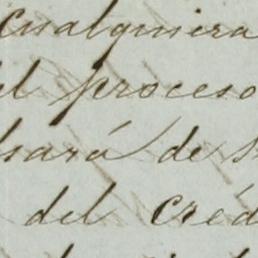 cualquiera
el proceso
sará de s
del créd